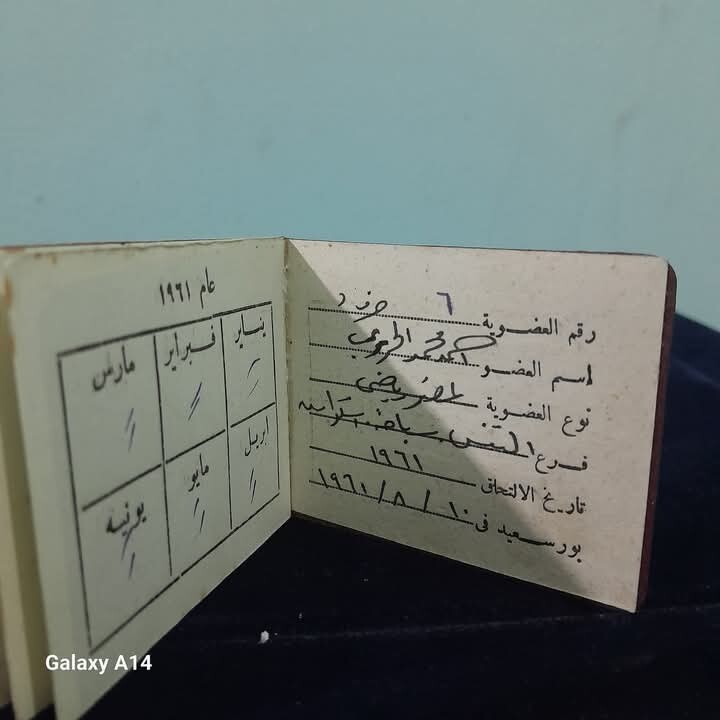 رقم العضوية ٦
اسم العضو أحمد محمد
نوع العضوية
فرع التنس سباحة
تاريخ الالتحاق ١٩٦١
بورسعيد فى ١٠ / ٨ / ١٩٦١
عام ١٩٦١
يناير فبراير مارس
ابريل مايو يونيه
Galaxy A14